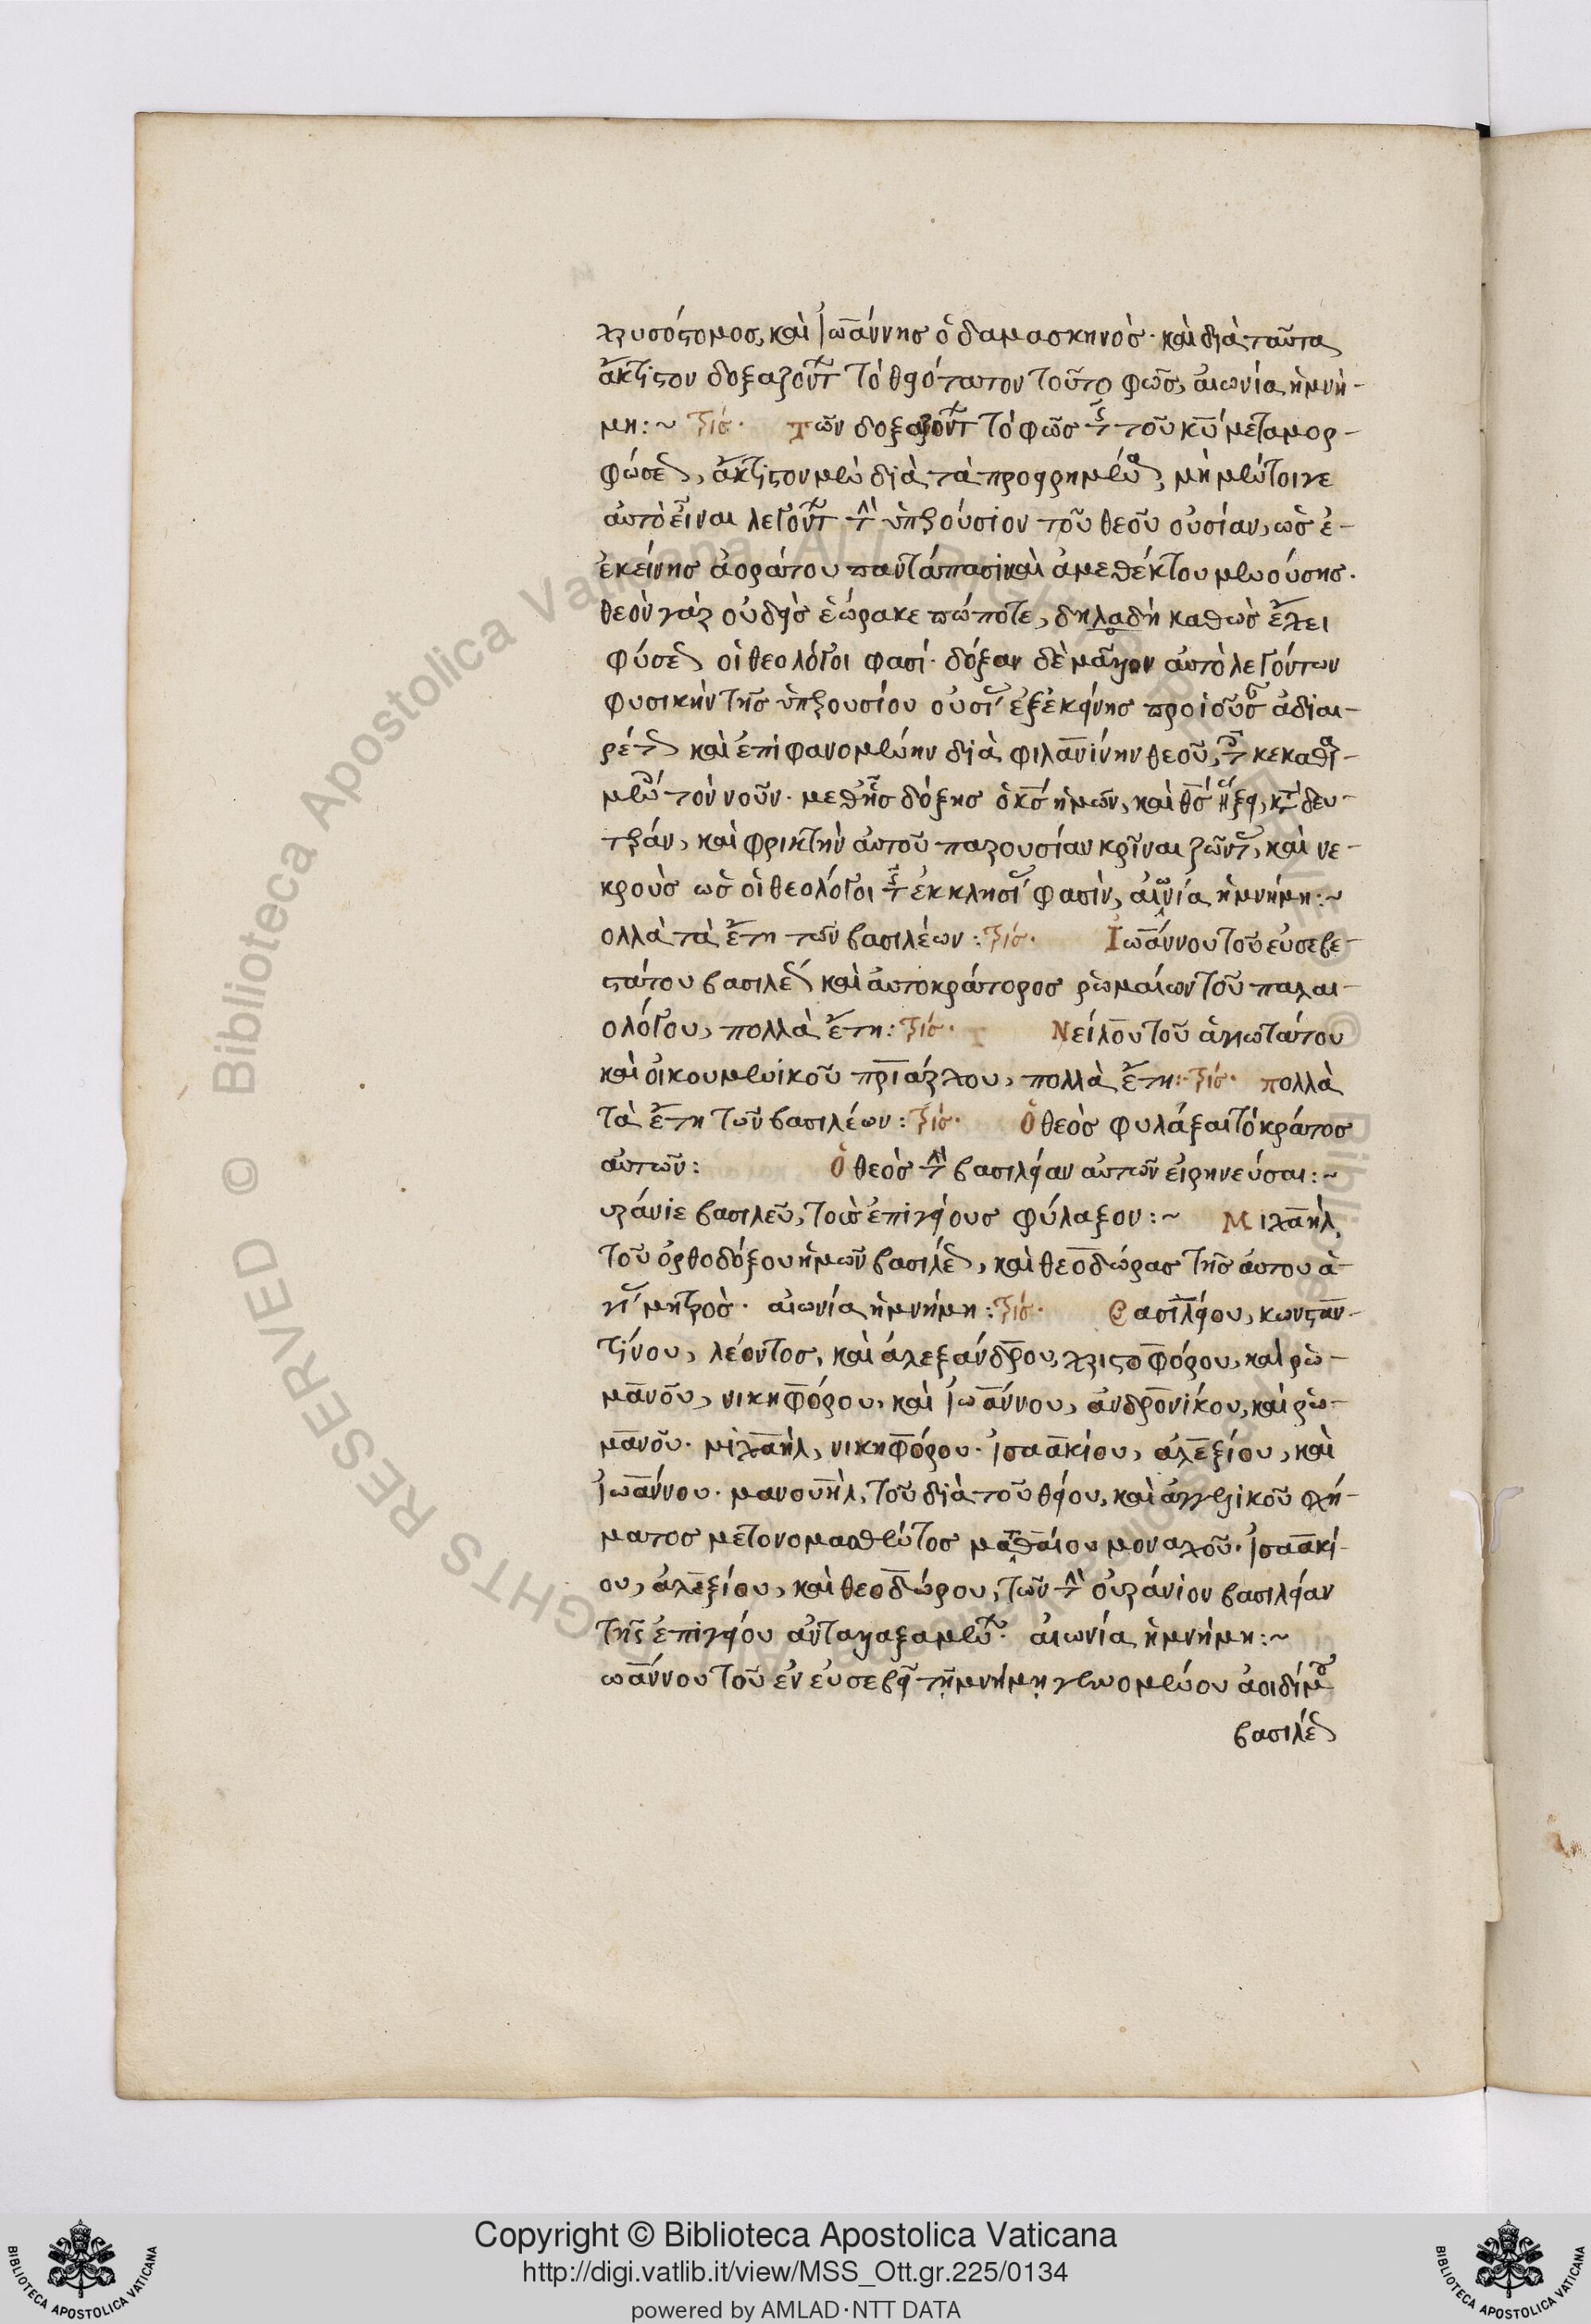 χρυσόστομος, καὶ Ἰωάννης ὁ δαμασκηνὸς· καὶ διὰ ταῦτα
ἄκτιστον δοξαζοντ τὸ θειότατον τοῦτο φῶς, αἰωνία ἡ μνή-
μη:~ τρίς· Τῶν δοξαζοντ τὸ φῶς τ τοῦ κυ μεταμορ-
φώσε, ἄκτιστον μὲν διὰ τὰ προειρημέν, μὴ μέντοιγε
αὐτὸ εἶναι λεγοντ τ ὑπερούσιον τοῦ θεοῦ οὐσίαν, ὡς ἐ-
ἐκείνης ἀοράτου παντάπασι καὶ ἀμεθέκτου μενούσης.
θεὸν γὰρ οὐδεὶς ἑώρακε πώποτε, δηλαδὴ καθὼς ἔχει
φύσε οἱ θεολόγοι φασί· δόξαν δὲ μᾶλλον αὐτὸ λεγόντων
φυσικὴν τῆς ὑπερουσίου οὐσί ἐξ ἐκείνης προϊούσ ἀδιαι-
ρέτ καὶ ἐπιφανομένην διὰ φιλανίνην θεοῦ, τ κεκαθ-
μέν τὸν νοῦν· μεθ ἧς δόξης ὁ κς ἡμῶν, καὶ θς ἥξει, κτ δευ-
τέραν, καὶ φρικτὴν αὐτοῦ παρουσίαν κρῖναι ζῶντ, καὶ νε-
κροὺς ὡς οἱ θεολόγοι τ ἐκκλησί φασὶν, αἰωνία ἡ μνήμη:~
ολλὰ τὰ ἔτη τῶν βασιλέων: τρίς· Ἰωάννου τοῦ εὐσεβε-
στάτου βασιλέ καὶ αὐτοκράτορος ῥωμαίων τοῦ παλαι-
ολόγου, πολλὰ ἔτη: τρίς· Νείλου τοῦ ἁγιωτάτου
καὶ οἰκουμενικοῦ πριάρχου, πολλὰ ἔτη: τρίς· πολλὰ
τὰ ἔτη τῶν βασιλέων: τρίς· Ὁ θεὸς φυλάξαι τὸ κράτος
αὐτῶν: Ὁ θεὸς τ βασιλείαν αὐτῶν εἰρηνεύσαι:~
υράνιε βασιλεῦ, τοὺς ἐπιγείους φύλαξον:~ Μιχαὴλ,
τοῦ ὀρθοδόξου ἡμῶν βασιλέ, καὶ θεοδώρας τῆς αὐτου ἁ-
γί μητρὸς· αἰωνία ἡ μνήμη: τρίς· Βασιλείου, κωνσταν-
τίνου, λέοντος, καὶ ἀλεξάνδρου, χριστοφόρου, καὶ ῥω-
μανοῦ, νικηφόρου, καὶ Ἰωάννου, ἀνδρονίκου, καὶ ῥω-
μανοῦ· μιχαὴλ, νικηφόρου· Ἰσαακίου, ἀλεξίου, καὶ
Ἰωάννου· μανουὴλ, τοῦ διὰ τοῦ θείου, καὶ ἀγγελικοῦ σχή-
ματος μετονομασθέντος ματθαίου μοναχοῦ· Ἰσαακί-
ου, ἀλεξίου, καὶ θεοδώρου, τῶν τ οὐράνιον βασιλείαν
τῆς ἐπιγείου ἀνταλλαξαμέν· αἰωνία ἡ μνήμη:~
ωάννου τοῦ ἐν εὐσεβεῖ τῇ μνήμῃ γενομένου ἀοιδίμ
βασιλέ
Copyright © Biblioteca Apostolica Vaticana
http://digi.vatlib.it/view/MSS_Ott.gr.225/0134
powered by AMLAD·NTT DATA